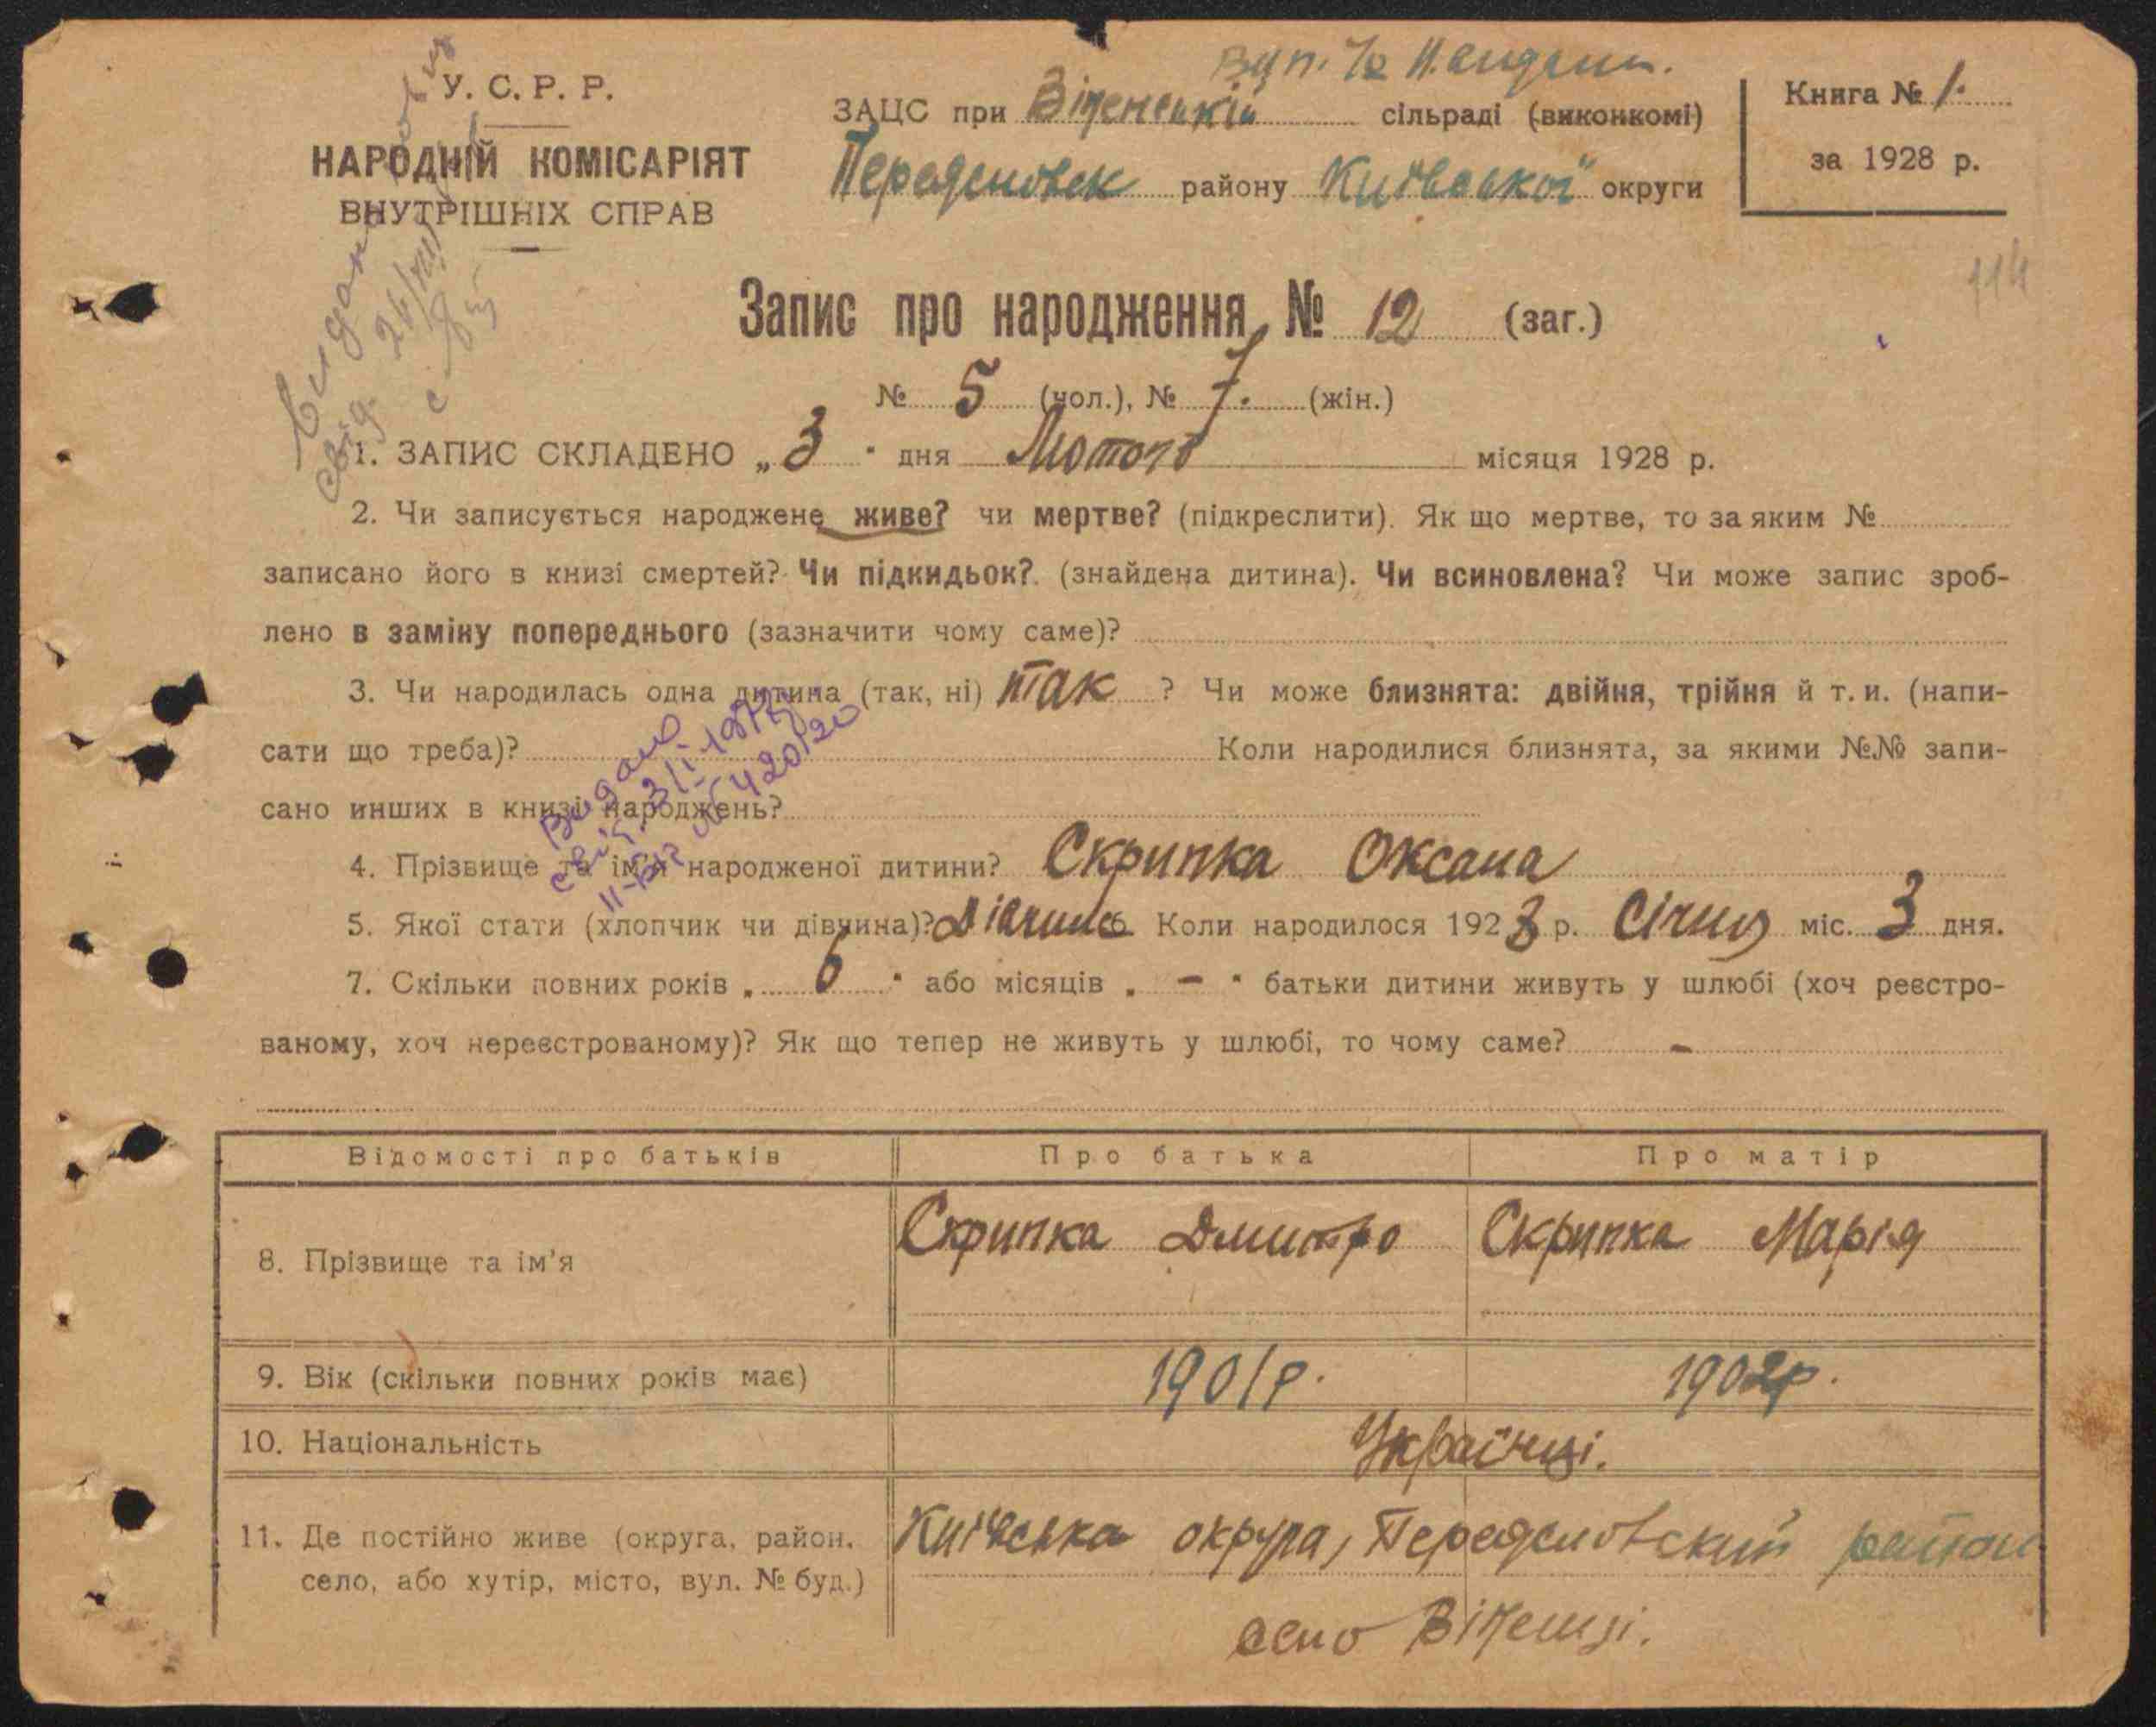 У. С. Р. Р.
НАРОДНІЙ КОМІСАРІЯТ
ВНУТРІШНІХ СПРАВ
ЗАЦС при сільраді (виконкомі)
району Київської округи
Книга № 1.
за 1928 р.
114
Запис про народження, № 12 (заг.)
№ 5 (чол.), № 7. (жін.)
1. ЗАПИС СКЛАДЕНО „3" дня Лютого місяця 1928 р.
2. Чи записується народжене живе? чи мертве? (підкреслити). Як що мертве, то за яким №
записано його в книзі смертей? Чи підкидьок? (знайдена дитина). Чи всиновлена? Чи може запис зроб-
лено в заміну попереднього (зазначити чому саме)?
3. Чи народилась одна дитина (так, ні) так ? Чи може близнята: двійня, трійня й т. и. (напи-
сати що треба)? Коли народилися близнята, за якими №№ запи-
сано инших в книзі народжень?
Видано
4. Прізвище та ім'я народженої дитини? Скрипка Оксана
5. Якої стати (хлопчик чи дівчина)? Дівчина 6. Коли народилося 1928 р. Січня міс. 3 дня.
7. Скільки повних років „ 6 " або місяців „ - " батьки дитини живуть у шлюбі (хоч реєстро-
ваному, хоч нереєстрованому)? Як що тепер не живуть у шлюбі, то чому саме? -
Відомості про батьків Про батька Про матір
8. Прізвище та ім'я Скрипка Дмитро Скрипка Марія
9. Вік (скільки повних років має) 1901р. 1902р.
10. Національність Українці.
11. Де постійно живе (округа, район, Київська округа, район
село, або хутір, місто, вул. № буд.)
село